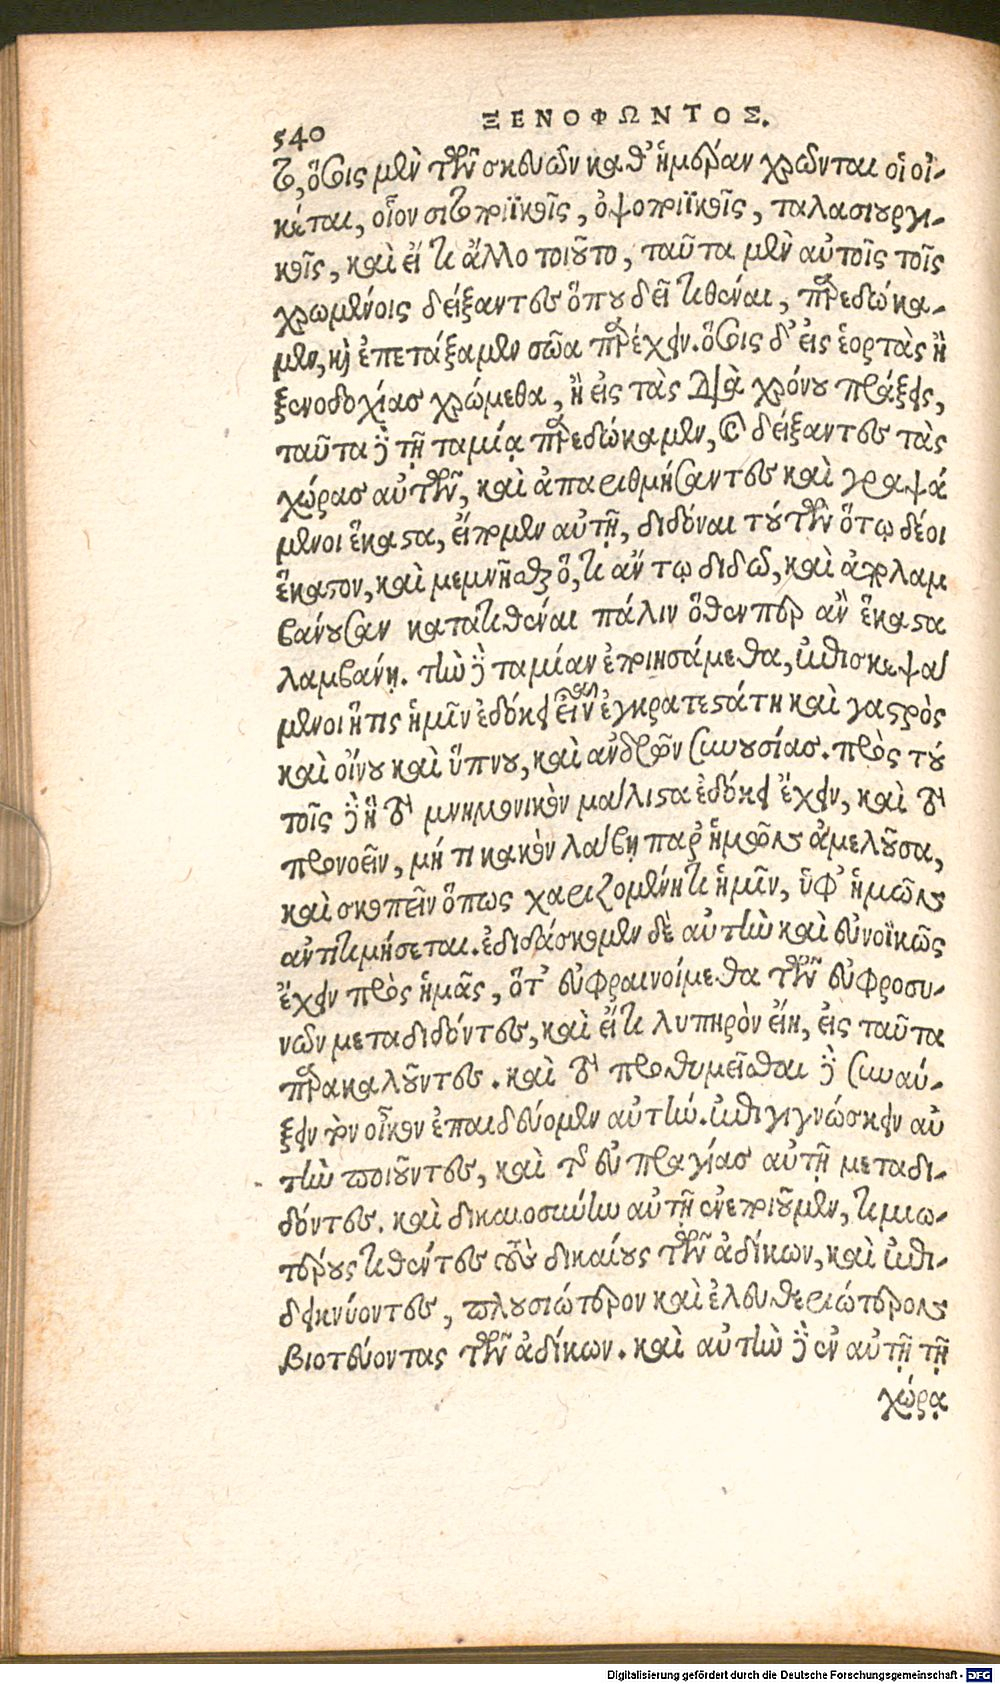 540 ΞΕΝΟΦΩΝΤΟΣ.
το, ὅσοις μὲν τῶν σκευῶν καθ' ἡμέραν χρῶνται οἱ οἰ-
κέται, οἷον σιτοποιϊκοῖς, ὀψοποιϊκοῖς, ταλασιουργι-
κοῖς, καὶ εἴ τι ἄλλο τοιοῦτο, ταῦτα μὲν αὐτοῖς τοῖς
χρωμένοις δείξαντες ὅπου δεῖ τιθέναι, παρεδώκα-
μεν, καὶ ἐπετάξαμεν σῶα παρέχειν. ὅσοις δ' εἰς ἑορτὰς ἢ
ξενοδοχίας χρώμεθα, ἢ εἰς τὰς διὰ χρόνου πράξεις,
ταῦτα δὲ τῇ ταμίᾳ παρεδώκαμεν, καὶ δείξαντες τὰς
χώρας αὐτῶν, καὶ ἀπαριθμήσαντες καὶ γραψά
μενοι ἕκαστα, εἴπομεν αὐτῇ, διδόναι τούτων ὅτῳ δέοι
ἕκαστον, καὶ μεμνῆσθαι ὅ, τι ἄν τῳ διδῶ, καὶ ἀπολαμ
βάνουσαν κατατιθέναι πάλιν ὅθενπερ ἂν ἕκαστα
λαμβάνῃ. τὴν δὲ ταμίαν ἐποιησάμεθα, ἐπισκεψά
μενοι ἥτις ἡμῖν ἐδόκει εἶναι ἐγκρατεστάτη καὶ γαστρὸς
καὶ οἴνου καὶ ὕπνου, καὶ ἀνδρῶν συνουσίας. πρὸς τού
τοις δὲ ἢ τὸ μνημονικὸν μάλιστα ἐδόκει ἔχειν, καὶ τὸ
προνοεῖν, μή τι κακὸν λάβῃ παρ' ἡμῶν ἀμελοῦσα,
καὶ σκοπεῖν ὅπως χαριζομένη τι ἡμῖν, ὑφ' ἡμῶν
ἀντιτιμήσεται. ἐδιδάσκομεν δὲ αὐτὴν καὶ εὐνοϊκῶς
ἔχειν πρὸς ἡμᾶς, ὅτ' εὐφραινοίμεθα τῶν εὐφροσυ-
νῶν μεταδιδόντες, καὶ εἴ τι λυπηρὸν εἴη, εἰς ταῦτα
παρακαλοῦντες. καὶ τὸ προθυμεῖσθαι δὲ συναύ-
ξειν τὸν οἶκον ἐπαιδεύομεν αὐτὴν. ἐπιγιγνώσκειν αὐ
τὴν ποιοῦντες, καὶ τῆς εὐπραγίας αὐτῇ μεταδι-
δόντες. καὶ δικαιοσύνην αὐτῇ ἐνεποιοῦμεν, τιμιω-
τέρους τιθέντες τοὺς δικαίους τῶν ἀδίκων, καὶ ἐπι-
δεικνύοντες, πλουσιώτερον καὶ ἐλευθεριώτερον
βιοτεύοντας τῶν ἀδίκων. καὶ αὐτὴν δὲ ἐν αὐτῇ τῇ
χώρᾳ
Digitalisierung gefördert durch die Deutsche Forschungsgemeinschaft - DFG